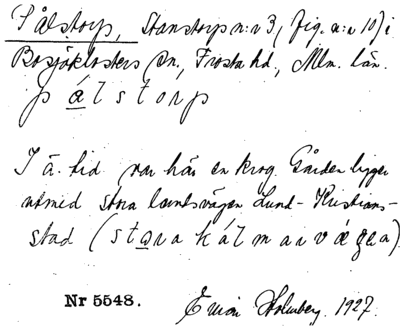 Pålstorp, Stanstorp n:r 3, (fig. n:r 10) i
Bosjöklosters sn, Frosta hd, Mlm. län.
pålstorp
I ä. tid var här en krog. Gården ligger
utmed stora landsvägen Lund-Kristian-
stad (stora kálmarvägen)
Nr 5548. Ewin Holmberg. 1927.